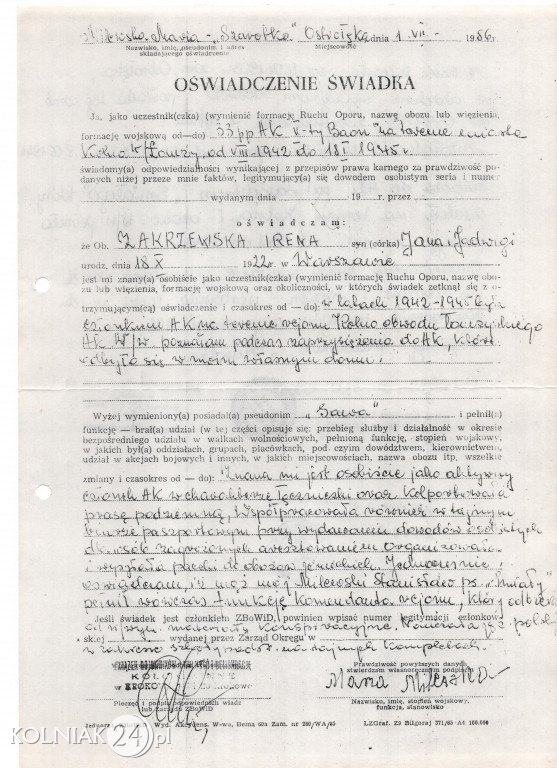 Milewska Maria - „Szarotka" Ostrołęka dnia 1 VII - 1986 r.
Nazwisko, imię, pseudonim i adres składającego oświadczenie
Miejscowość
OŚWIADCZENIE ŚWIADKA
Ja, jako uczestnik(czka) (wymienić formację Ruchu Oporu, nazwę obozu lub więzienia,
formację wojskową od—do) 33 pp AK V-ty Baon na terenie miasta
Kolno k/Łomży, od VIII-1942 do 18 I 1945 r.
świadomy(a) odpowiedzialności wynikającej z przepisów prawa karnego za prawdziwość po-
danych niżej przeze mnie faktów, legitymujący(a) się dowodem osobistym seria i numer
wydanym dnia 19 r. przez
oświadczam:
że Ob. ZAKRZEWSKA IRENA syn (córka) Jana i Jadwigi
urodz. dnia 18 X 1922 r. w Warszawie
jest mi znany(a) osobiście jako uczestnik(czka) (wymienić formację Ruchu Oporu, nazwę obo-
zu lub więzienia, formację wojskową oraz okoliczności, w których świadek zetknął się z o-
trzymującym(cą) oświadczenie i czasokres od — do): w latach 1942-1945 była
członkiem AK na terenie rejonu Kolno obwodu łomżyńskiego
AK W/w poznałam podczas zaprzysiężenia do AK, które
odbyło się w moim własnym domu.
Wyżej wymieniony(a) posiadał(a) pseudonim „Sawa" i pełnił(a)
funkcję — brał(a) udział (w tej części opisuje się: przebieg służby i działalność w okresie
bezpośredniego udziału w walkach wolnościowych, pełnioną funkcję, stopień wojskowy,
w jakich był(a) oddziałach, grupach, placówkach, pod czyim dowództwem, kierownictwem,
udział w akcjach bojowych i innych, w jakich miejscowościach, nazwa obozu itp., wszelkie
zmiany i czasokres od — do): Znana mi jest osobiście jako aktywny
członek AK w charakterze łączniczki oraz kolportowała
prasę podziemną, współpracowała również w tajnym
biurze paszportowym przy wydawaniu dowodów osobistych
dla osób zagrożonych aresztowaniem. Organizowała
i wysyłała paczki do obozów jenieckich. Jednocześnie
oświadczam, iż mąż mój Milewski Stanisław ps. „Śmiały"
pełnił wówczas funkcję Komendanta rejonu, który odbierał
Jeśli świadek jest członkiem ZBoWiD, powinien wpisać numer legitymacji członkow-
od w/wym. materiały konspiracyjne. Nauczała jęz. polski
skiej wydanej przez Zarząd Okręgu w
w zakresie szkoły podst. na tajnych kompletach.
Prawdziwość powyższych danych
stwierdzam własnoręcznym podpisem
Maria Milewska
Pieczęć i podpis potwierdzający władz
lub Zarządu ZBoWiD
Nazwisko, imię, stopień wojskowy,
funkcja, stanowisko
Wyd. Akcydens. W-wa, Bema 60a Zam. nr 280/WA/85
LZGraf. Z9 Biłgoraj 371/85 - A4 100.000
KOLNIAK24.pl